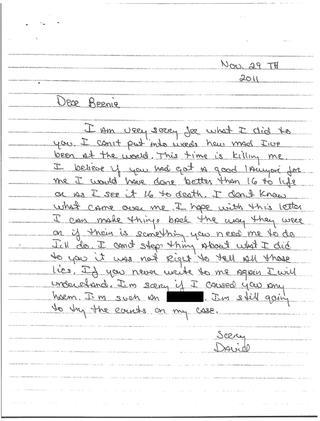 Nov. 29 TH
2011
Dear Bernie
I am very sorry for what I did to
you. I can't put into words how mad I've
been at the world. This time is killing me.
I believe if you had got a good lawyer for
me I would have done better than 16 to life
or as I see it 16 to death. I don't know
what came over me. I hope with this letter
I can make things back the way they were
or if their is something you need me to do
I'll do. I can't stop thing about what I did
to you it was not right to tell all those
lies. If you never write to me again I will
understand. I'm sorry if I caused you any
harm. I'm such an . I'm still going
to try the courts on my case.
Sorry
David